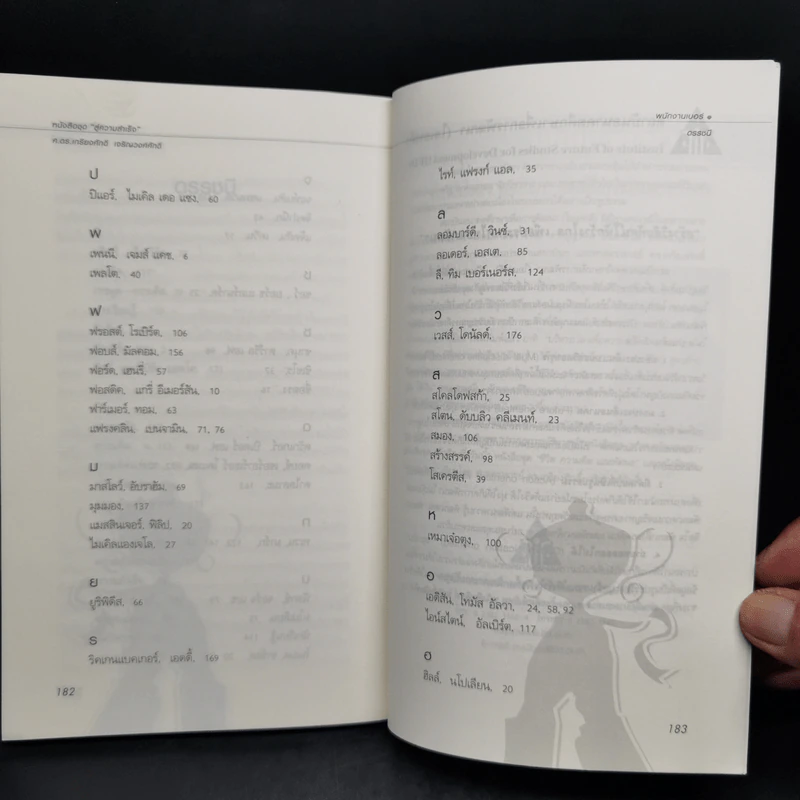 หนังสือชุด "สู่ความสำเร็จ"
ศ.ดร.เกรียงศักดิ์ เจริญวงศ์ศักดิ์
ป
ปิแอร์, ไมเคิล เดอ แซง, 60
พ
เพนนี, เจมส์ แคช, 6
เพลโต, 40
ฟ
ฟรอสต์, โรเบิร์ต, 106
ฟอบส์, มัลคอม, 156
ฟอร์ด, เฮนรี่, 57
ฟอสดิค, แฮรี่ อีเมอร์สัน, 10
ฟาร์เมอร์, ทอม, 63
แฟรงคลิน, เบนจามิน, 71, 76
ม
มาสโลว์, อับราฮัม, 69
มุมมอง, 137
แมสสินเจอร์, ฟิลิป, 20
ไมเคิลแองเจโล, 27
ย
ยูริพิดีส, 66
ร
ริคเกนแบคเกอร์, เอดดี้, 169
182
พนักงานเบอร์ ๑
ดรรชนี
ไรท์, แฟรงก์ แอล, 35
ล
ลอมบาร์ดี, วินซ์, 31
ลอเดอร์, เอสเต, 85
ลี, ทิม เบอร์เนอร์ส, 124
ว
เวสส์, โดนัลด์, 176
ส
สโคลโดฟสก้า, 25
สโตน, ดับบลิว คลีเมนท์, 23
สมอง, 106
สร้างสรรค์, 98
โสเครตีส, 39
ห
เหมาเจ๋อตุง, 100
อ
เอดิสัน, โทมัส อัลวา, 24, 58, 92
ไอน์สไตน์, อัลเบิร์ต, 117
ฮ
ฮิลล์, นโปเลียน, 20
183